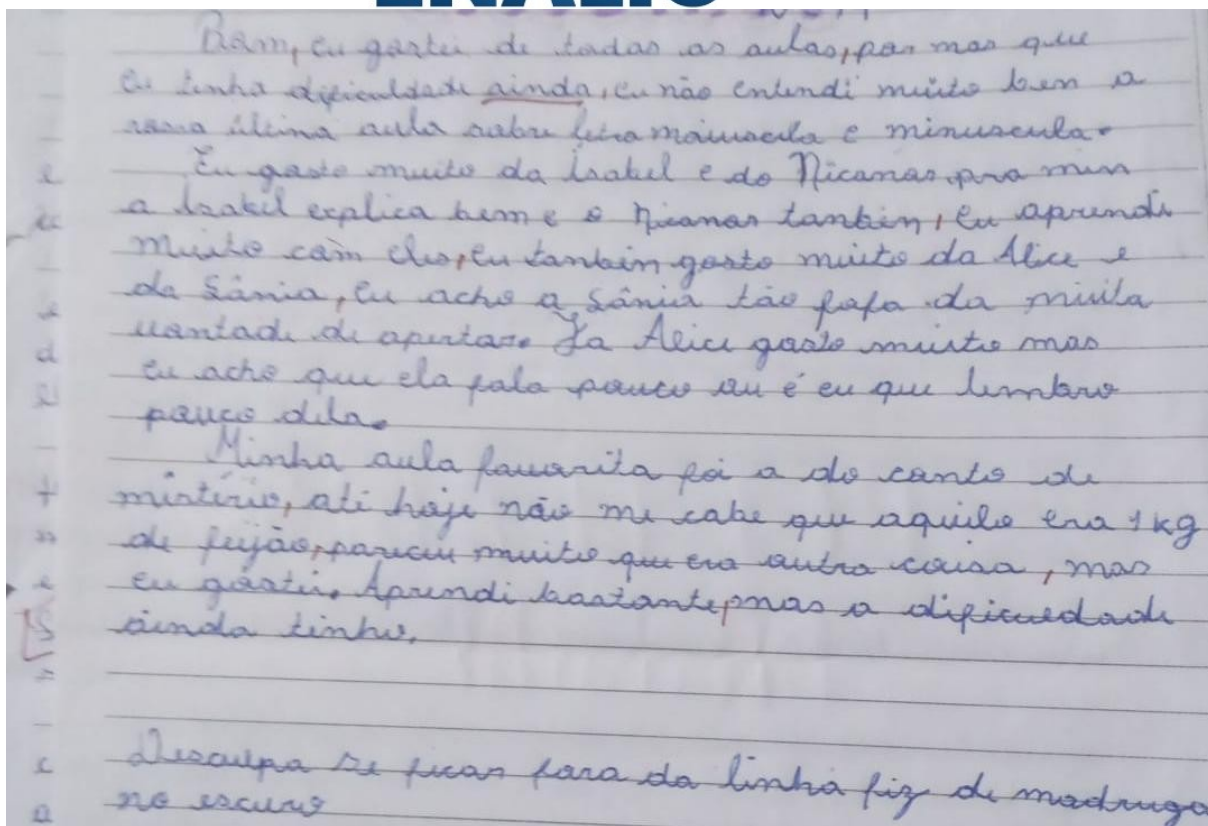 ENALIC
Bom, eu gostei de todas as aulas, por mas que
eu tenha dificuldade ainda, eu não entendi muito bem a
nossa última aula sobre letra maiuscula e minuscula.
Eu gosto muito da Isabel e do Nicanor, pra mim
a Isabel explica bem e o Nicanor tanbém, eu aprendi
muito com eles, eu tanbém gosto muito da Alice e
da Sânia, eu acho a Sânia tão fofa da muita
vontade de apertar. Ja Alice gosto muito mas
eu acho que ela fala pouco ou é eu que lembro
pouco dela.
Minha aula favorita foi a do conto de
mistério, até hoje não me cabe que aquilo era 1 kg
de feijão, pareceu muito que era outra coisa, mas
eu gostei. Aprendi bastante, mas a dificuldade
ainda tenho.
Desculpa se ficar fora da linha fiz de madruga
no escuro